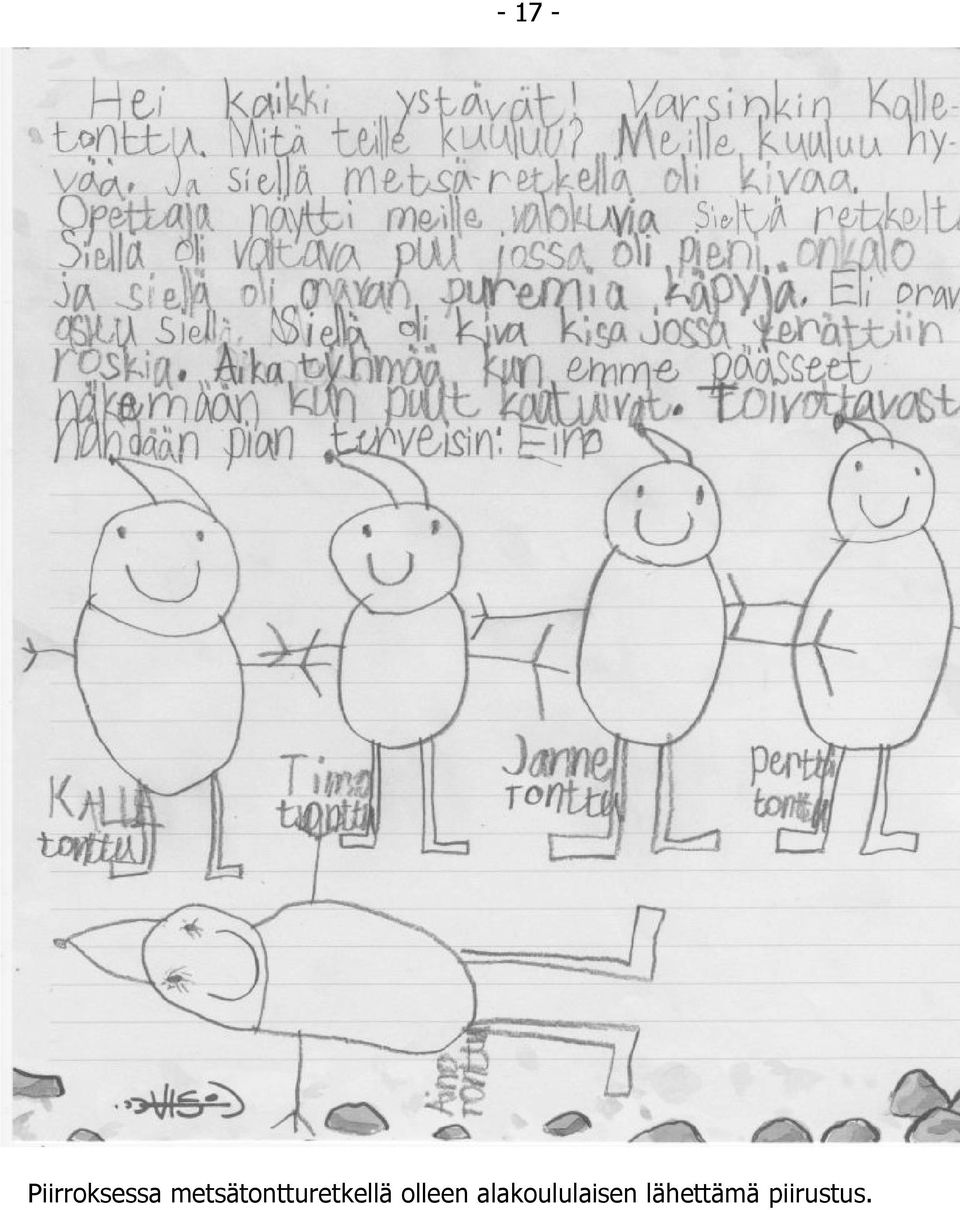 - 17 -
Hei kaikki ystävät! Varsinkin Kalle-
tonttu. Mitä teille kuuluu? Meille kuuluu hy-
vää. Ja siellä metsä-retkellä oli kivaa.
Opettaja näytti meille valokuvia sieltä retkelt
Siella oli valtava puu jossa oli pieni onkalo
ja siellä oli oravan puremia käpyjä. Eli orav
asuu siellä. Siellä oli kiva kisa jossa kerättiin
roskia. Aika tyhmää kun emme päässeet
näkemään kun puut kaatuivat. Toivottavast
nähdään pian terveisin: Eino
KALLE
tonttu
Timo
tonttu
Janne
Tonttu
Pertti
tonttu
Aino
Tonttu
Piirroksessa metsätontturetkellä olleen alakoululaisen lähettämä piirustus.